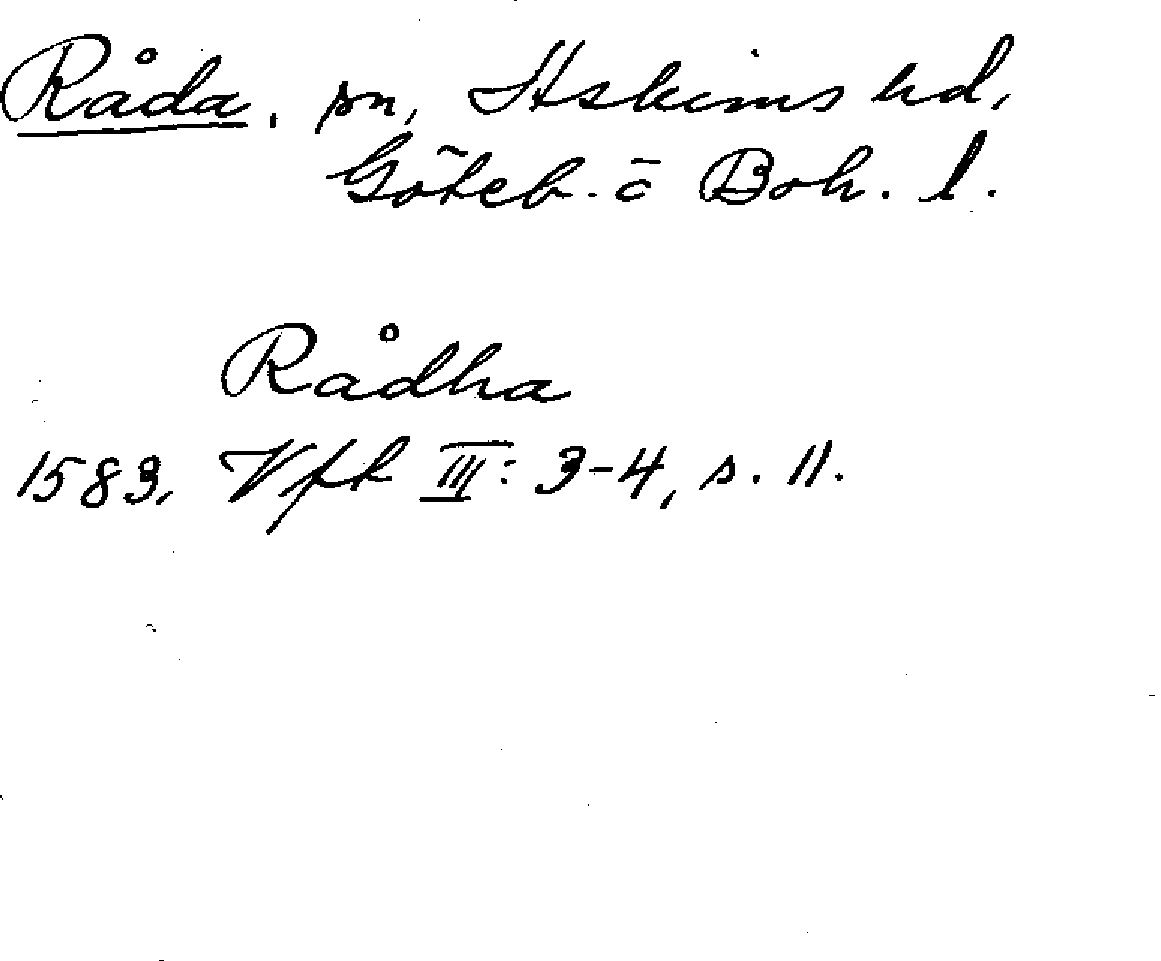 Råda, sn, Askims hd,
Göteb. o Boh. l.
Rådha
1583, Vft III: 3-4, s. 11.